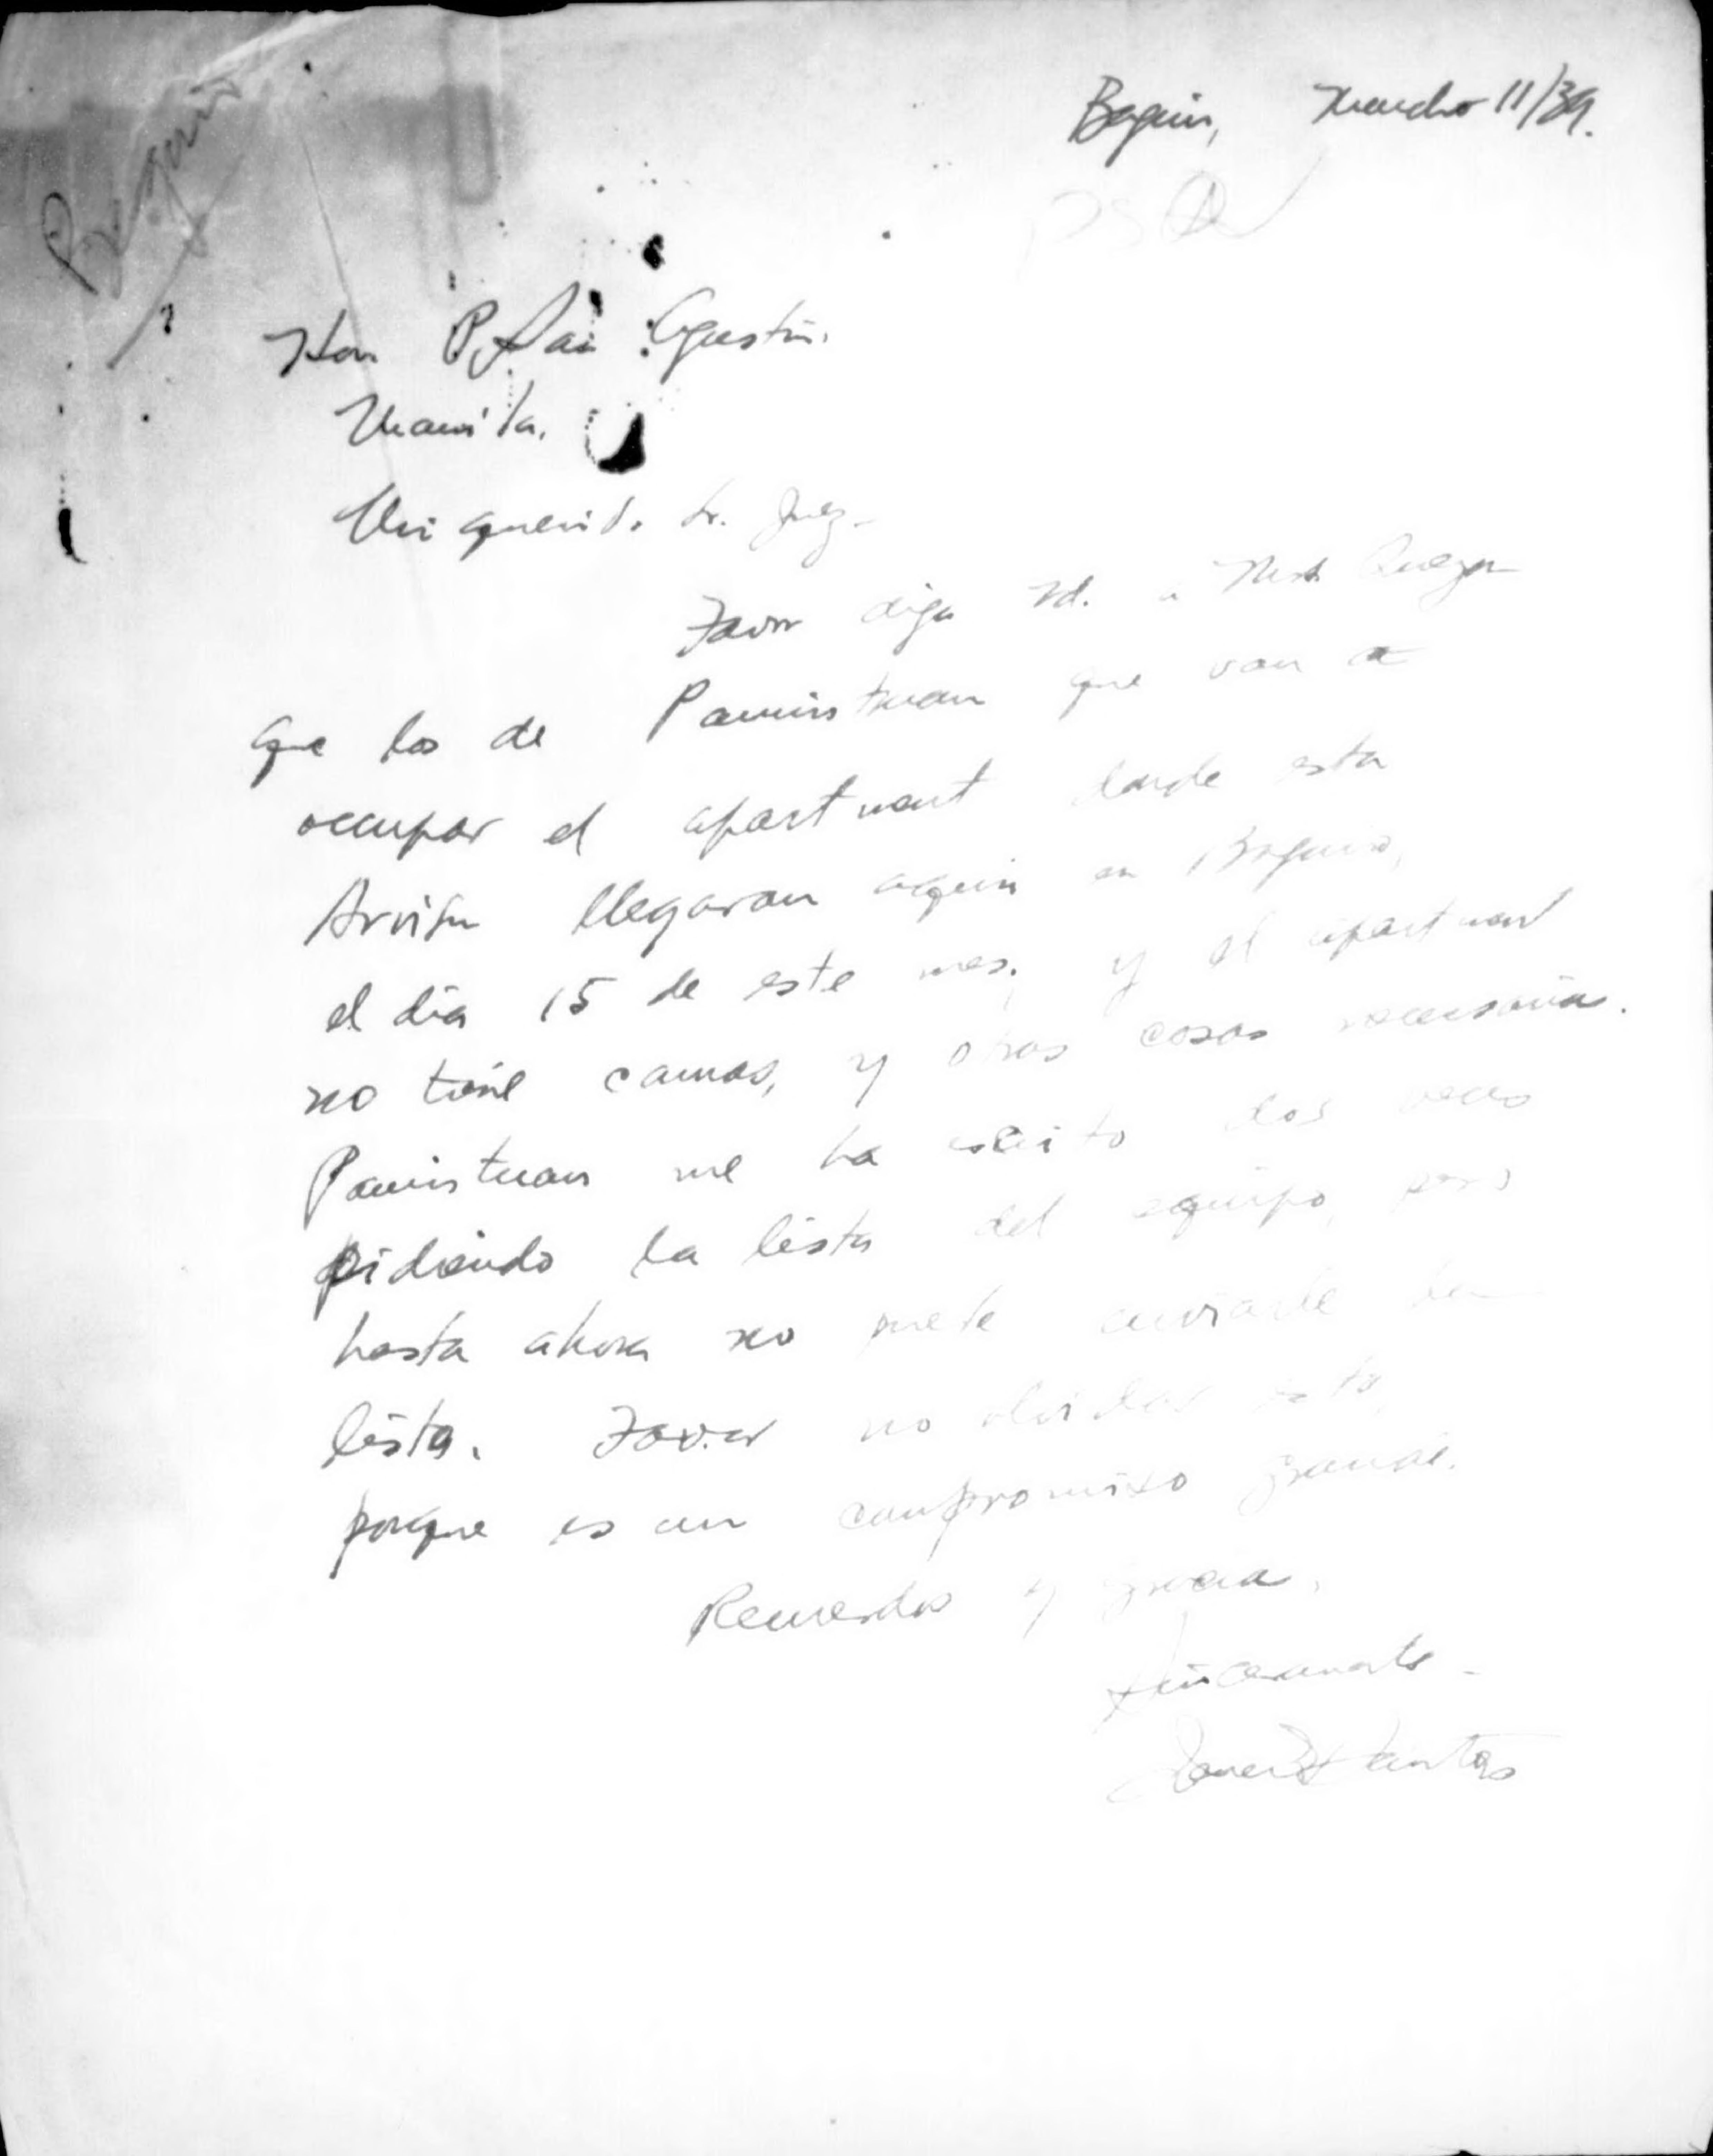 Baguio
Baguio, Marzo 11/39.
PSA
Hon P. San Agustin.
Manila.
Mi querido Sr. Juez-
Favor diga Vd. a Mrs. Quezon
que los de Pamintuan que van a
occupar el apartment donde esta
Arvisu llegaran aqui en Baguio,
el dia 15 de este mes, y el apartment
no tiene camas, y otras cosas necesarias.
Pamintuan me ha escrito dos veces
pidiendo la lista del equipo, pero
hasta ahora no puede enviarle la
lista. Favor no olvidar esto,
porque es un compromiso grande.
Recuerdos y gracias,
Sinceramente-
Santos